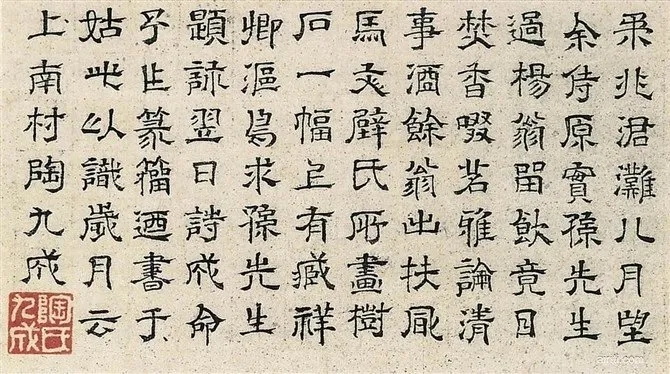 柔兆涒灘八月望
余侍原實孫先生
過楊翁留飲竟日
焚香啜茗雅論清
事酒餘翁出扶風
馬文璧氏所畫樹
石一幅上有臧祥
卿漚鳥求孫先生
題詠翌日詩成命
予作篆籀迺書于
姑此以識歲月云
上南村陶九成
陶氏九成